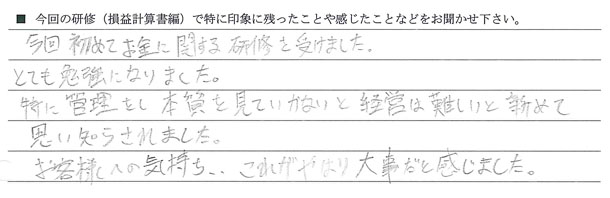 ■ 今回の研修（損益計算書編）で特に印象に残ったことや感じたことなどをお聞かせ下さい。
今回 初めてお金に関する研修を受けました。
とても勉強になりました。
特に管理をし本質を見ていかないと経営は難しいと新めて
思い知らされました。
お客様への気持ち、、これがやはり大事だと感じました。